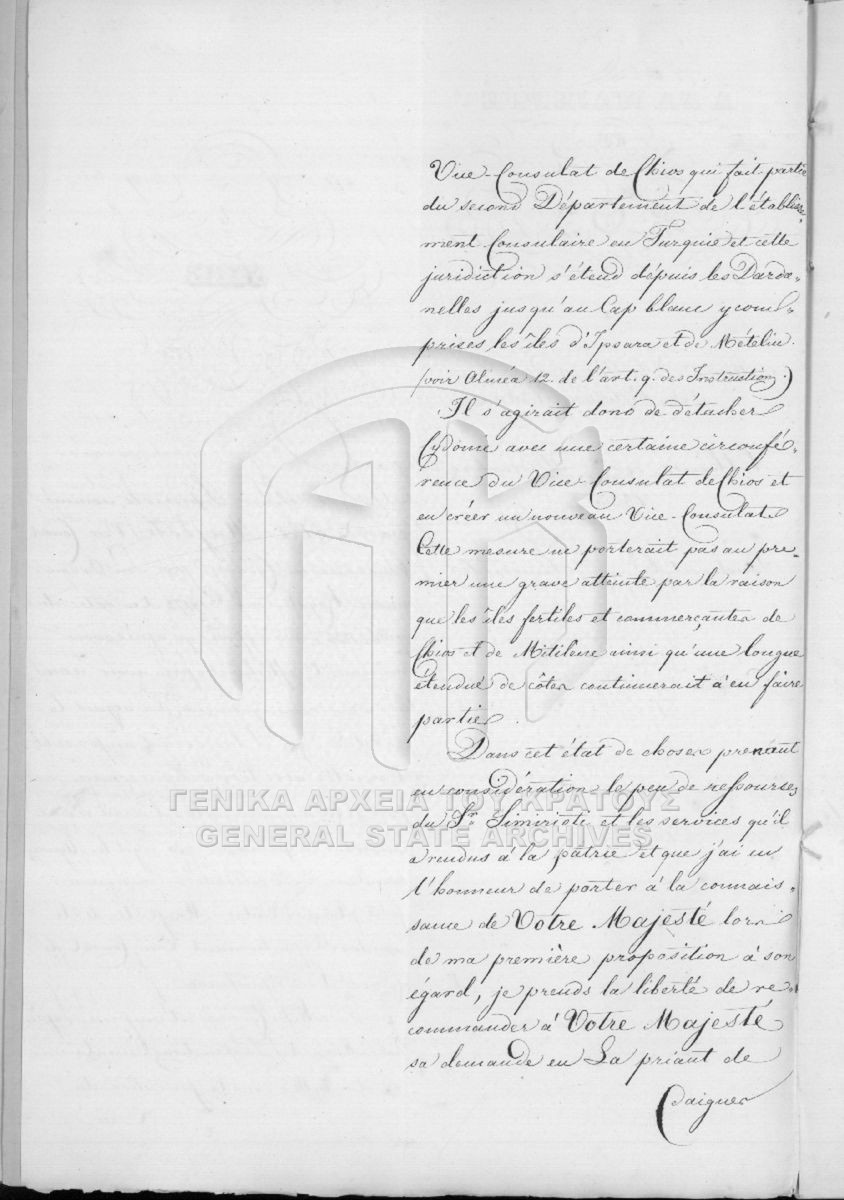 Vice-Consulat de Chios qui fait partie
du second Département de l'établisse-
ment Consulaire en Turquie et cette
juridiction s'étend dépuis les Darda-
nelles jusqu'au Cap blanc y com-
prises les îles d'Ipsara et de Mételin.
(voir Alinéa 12. de l'art. 9. des Instruction.)
Il s'agirait donc de détacher
Cydonie avec une certaine circonfé-
rence du Vice-Consulat de Chios et
en créer un nouveau Vice-Consulat.
Cette mesure ne porterait pas au pre-
mier une grave atteinte par la raison
que les îles fertiles et commerçantes de
Chios et de Mitilène ainsi qu'une longue
étendue de côtes continuerait à en faire
partie.
Dans cet état de choses prenant
en considération le peu de ressources
du Sr. Simirioti et les services qu'il
a rendus à la patrie et que j'ai eu
l'honneur de porter à la connais-
sance de Votre Majesté lors
de ma première proposition à son
égard, je prends la liberté de re-
commander à Votre Majesté
sa demande en La priant de
daigner
ΓΕΝΙΚΑ ΑΡΧΕΙΑ ΤΟΥ ΚΡΑΤΟΥΣ
GENERAL STATE ARCHIVES